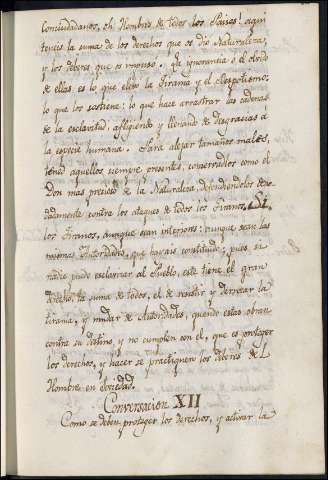 Conciudadanos, oh Hombres de todos los Paises! aqui
teneis la suma de los derechos que os dió Naturaleza,
y los deberes que os impuso. La ignorancia ó el olvido
de ellas es lo que eleva la Tirania y el despotismo;
lo que los sostiene; lo que hace arrastrar las cadenas
de la esclavitud, afligiendo y llenando de desgracias á
la especie humana. Para alejar tamaños males,
tened aquellos siempre presentes, conservadlos como el
Don mas precioso de la Naturaleza, defendiendolos
contra los ataques de todos los Tiranos. Si,
los Tiranos, aunque sean interiores: aunque sean las
mismas Autoridades, que hayais constituido; pues si
nadie puede esclavizar al Pueblo, este tiene el gran
derecho, la suma de todos, el de resistir y derrocar la
tirania, y mudar de Autoridades, quando estas obran
contra su destino, y no cumplen con el, que es proteger
los derechos, y hacer se practiquen los deberes del
Hombre en sociedad.
Conversacion XII
Como se deben proteger los derechos, y activar la